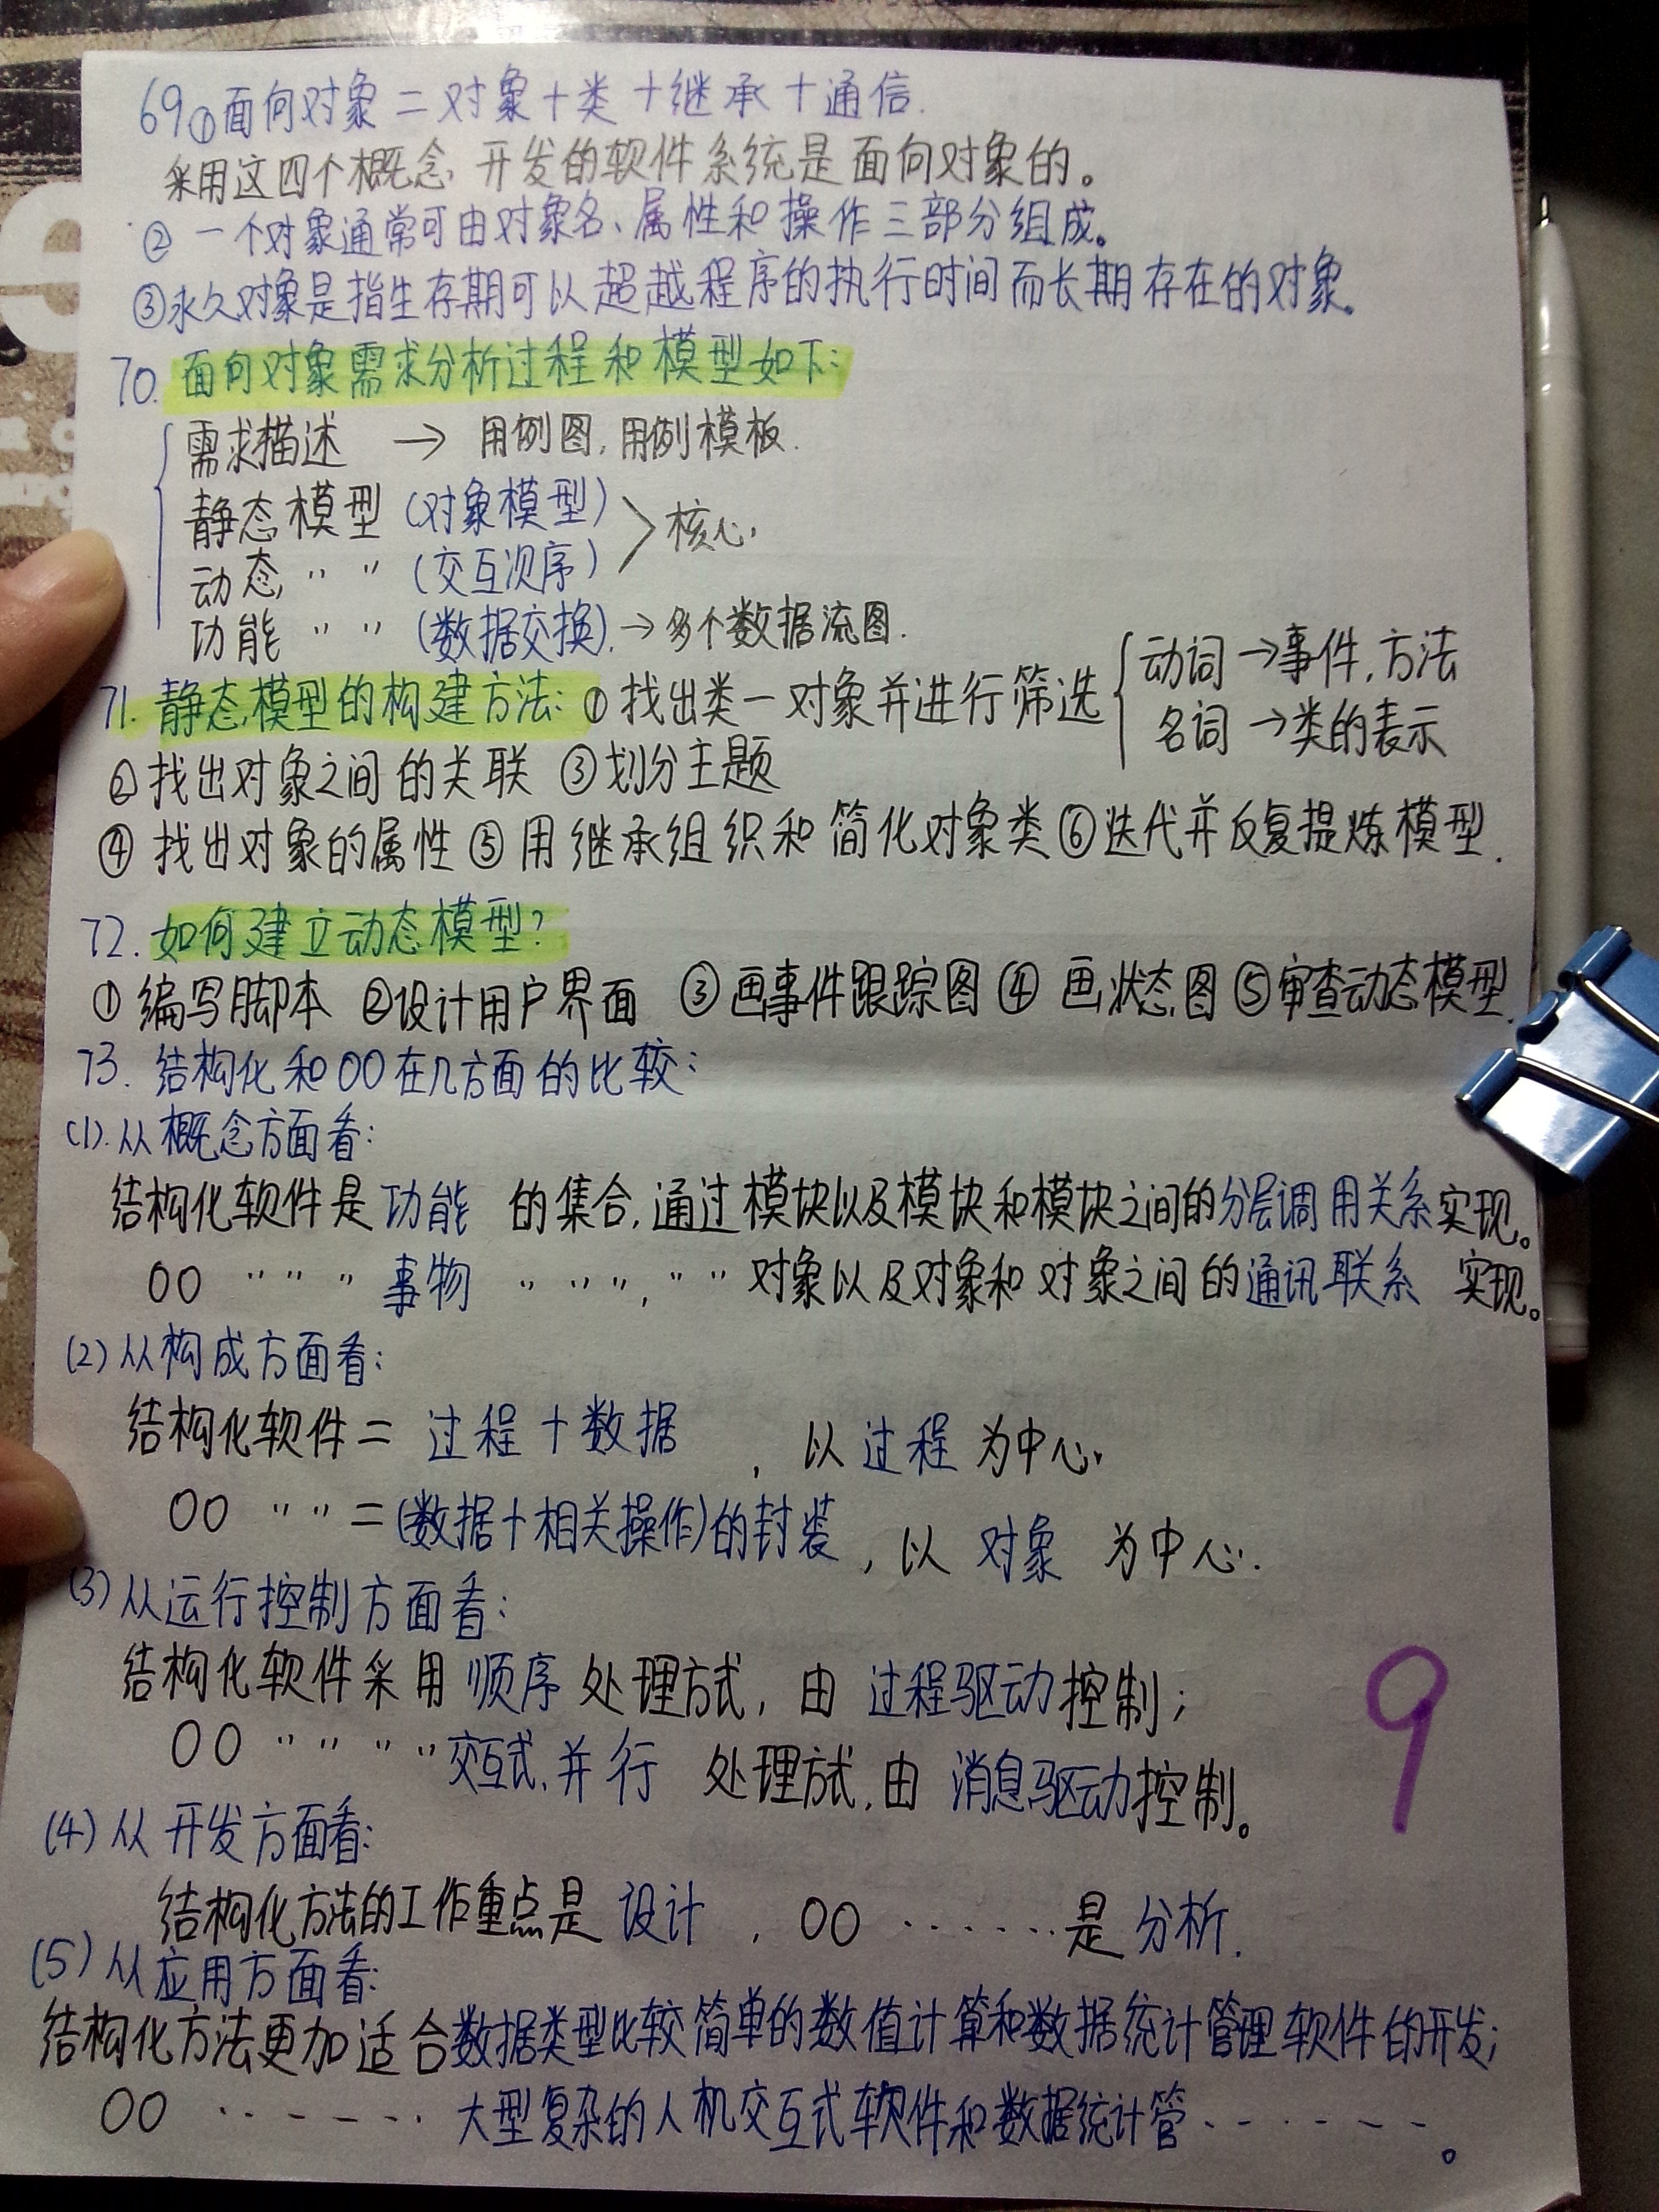 69①面向对象＝对象＋类＋继承＋通信.
采用这四个概念开发的软件系统是面向对象的。
② 一个对象通常可由对象名、属性和操作三部分组成。
③永久对象是指生存期可以超越程序的执行时间而长期存在的对象。
70. 面向对象需求分析过程和模型如下:
需求描述 → 用例图,用例模板.
静态模型 (对象模型)
核心.
动态 〃 〃 (交互次序)
功能 〃 〃 (数据交换). → 多个数据流图.
71. 静态模型的构建方法: ①找出类一对象并进行筛选 { 动词→事件,方法
名词→类的表示
②找出对象之间的关联 ③划分主题
④ 找出对象的属性 ⑤用继承组织和简化对象类 ⑥迭代并反复提炼模型.
72. 如何建立动态模型?
① 编写脚本 ②设计用户界面 ③画事件跟踪图 ④ 画状态图 ⑤审查动态模型.
73. 结构化和OO在几方面的比较:
(1).从概念方面看:
结构化软件是 功能 的集合,通过模块以及模块和模块之间的分层调用关系实现。
OO 〃 〃 〃 事物 〃 〃 〃, 〃 〃 对象以及对象和对象之间的通讯联系 实现。
(2)从构成方面看:
结构化软件＝ 过程＋数据 , 以过程 为中心.
OO 〃 〃 ＝(数据＋相关操作)的封装 , 以 对象 为中心.
(3)从运行控制方面看:
结构化软件采用 顺序 处理方式, 由 过程驱动控制;
OO 〃 〃 〃 〃 交互式、并行 处理方式,由 消息驱动控制。
(4)从开发方面看:
结构化方法的工作重点是 设计 , OO ······· 是 分析.
(5)从应用方面看:
结构化方法更加适合数据类型比较简单的数值计算和数据统计管理软件的开发;
OO ······· 大型复杂的人机交互式软件和数据统计管 ······。
9